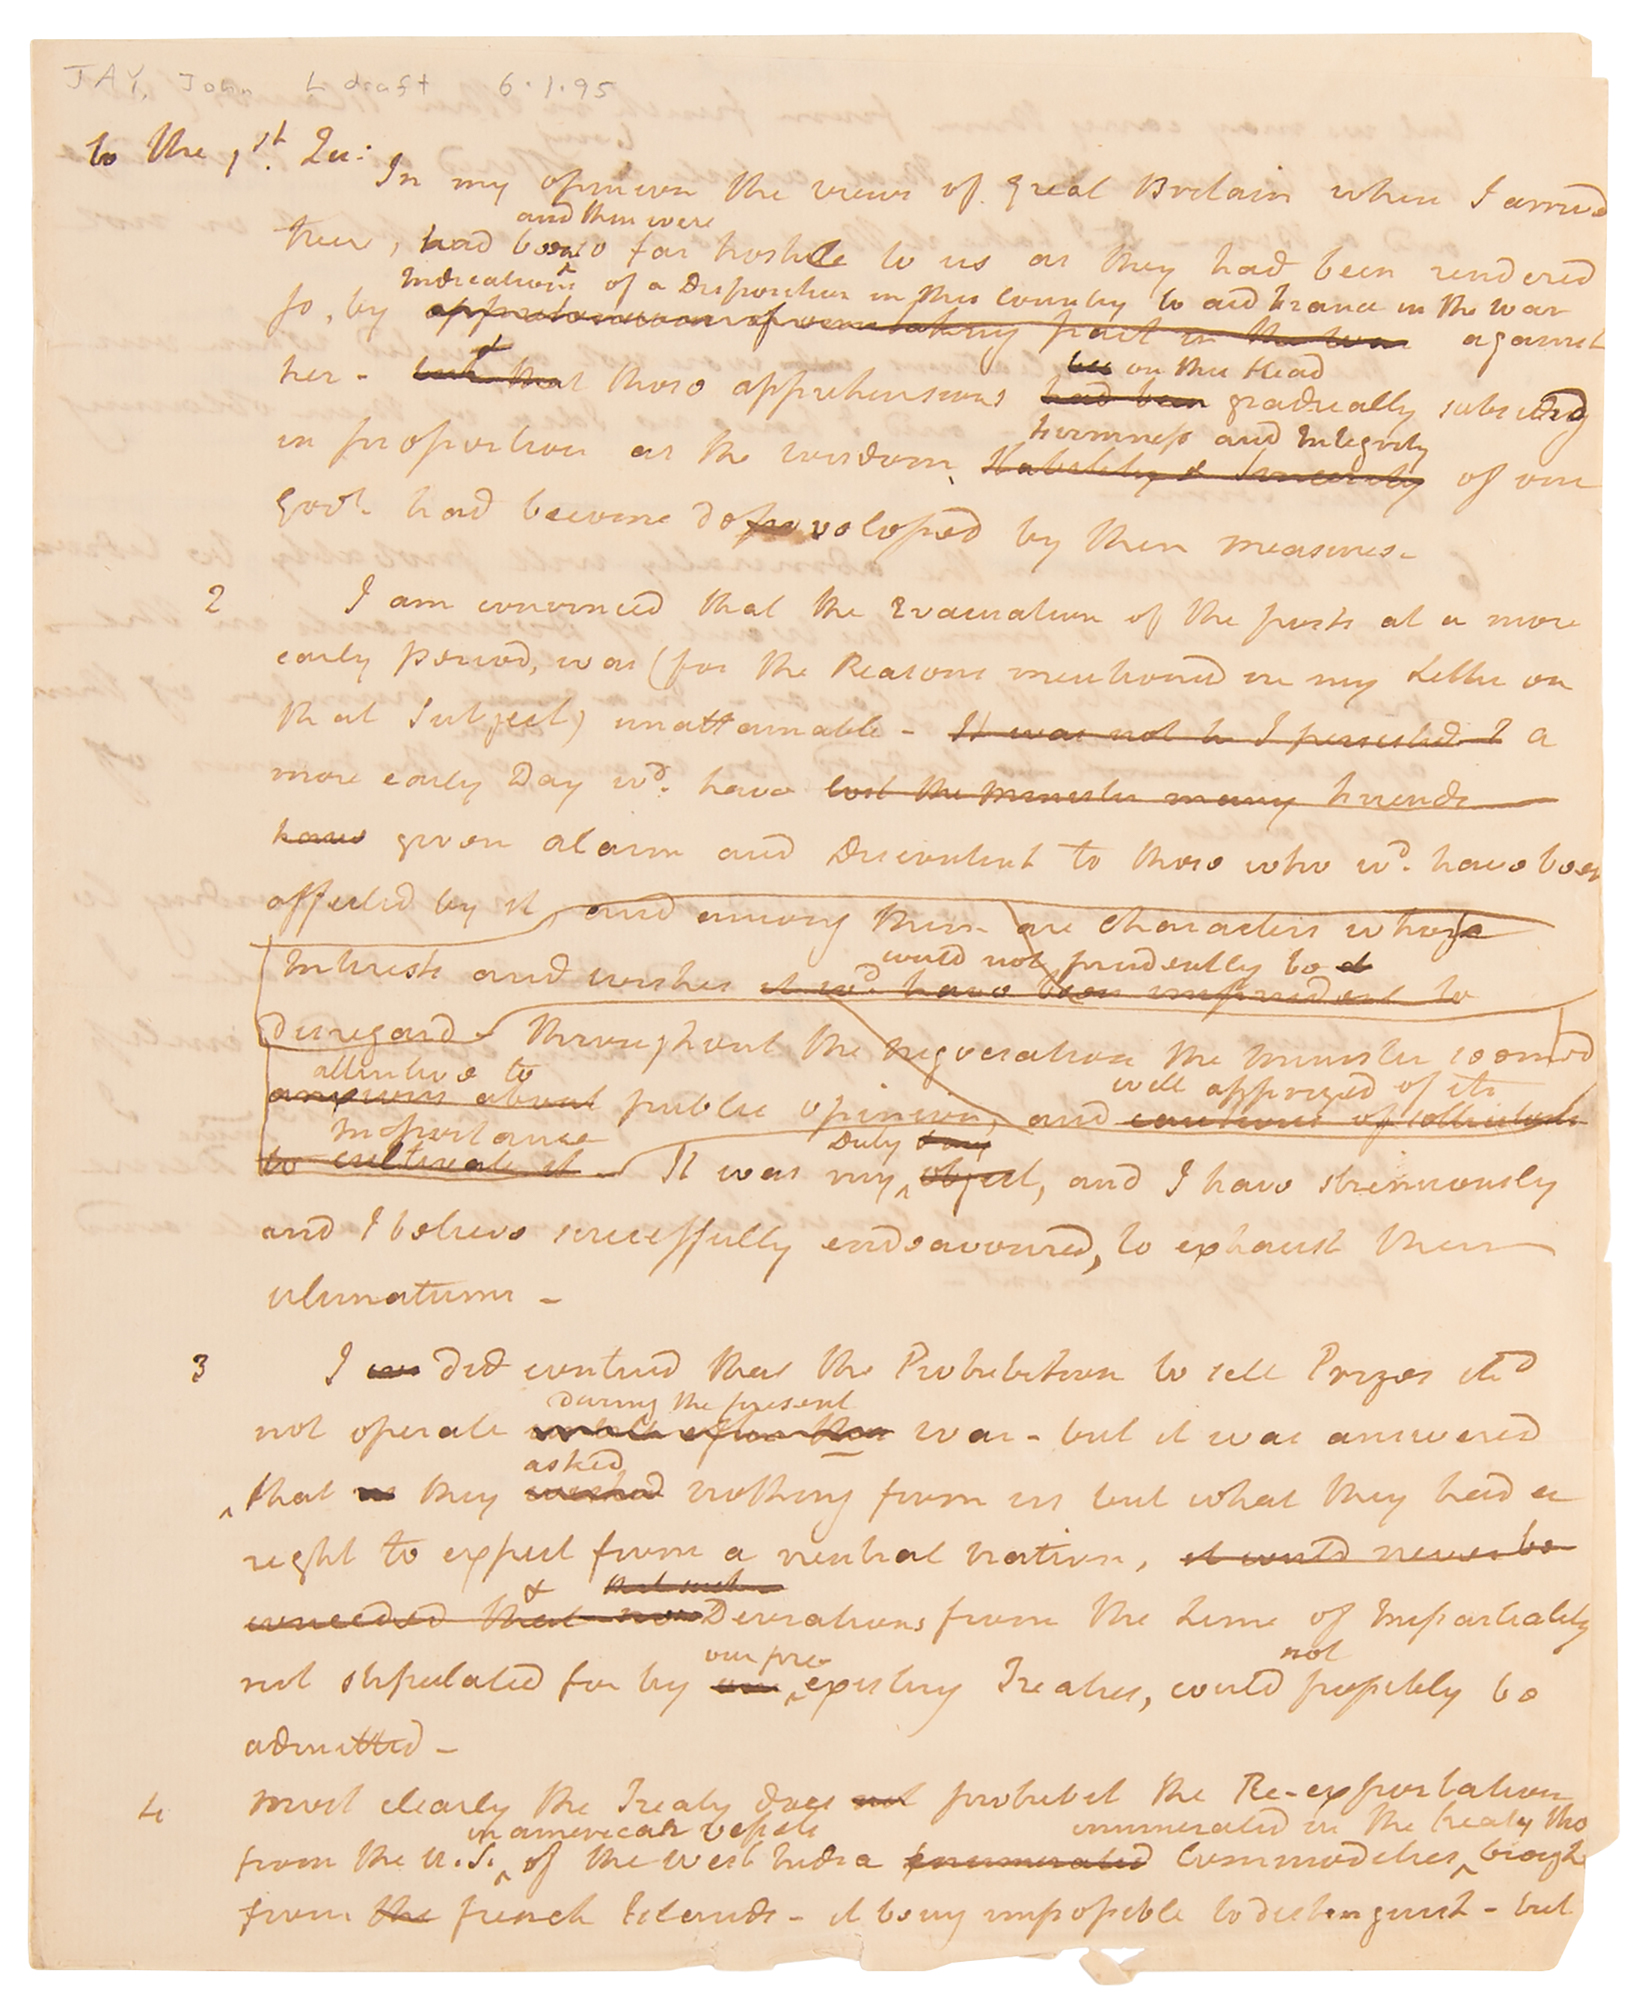 JAY, John L draft 6.1.95
to the 1st. Qu:
In my opinion the views of Great Britain when I arrived
and then were
there, had been so far hostile to us as they had been rendered
Indications of a Disposition in this Country to aid France in the war
so, by apprehensions of our taking part in the war against
&
her - but that those apprehensions had been gradually subsiding
on this Head
in proportion as the wisdom, Stability & Sincerity of our
firmness and Integrity
Govt. had become developed by their measures-
2 I am convinced that the Evacuation of the posts at a more
early Period, was (for the Reasons mentioned in my Letter on
that Subject) unattainable - It was not I persisted a
more early Day wd. have lost the Minister many friends
have given alarm and Discontent to those who wd. have been
affected by it and among them are Characters whose
could not prudently be
Interests and wishes it wd. have been imprudent to
disregard - throughout the negociation the minister seemed
attentive to
anxious about public opinion, and cautious of
well apprized of its
Importance
to cultivate it - It was my object, and I have strenuously
Duty
and I believe successfully endeavoured, to exhaust their
ulimatums -
3 I did contend that the Prohibition to sell Prizes shd
during the present
not operate until after this war - but it was answered
asked
that they wished nothing from us but what they had a
right to expect from a neutral nation, it would never be
& that such
conceded that no Deviations from the Line of Impartiality
our pre- not
not stipulated for by our existing Treaties, could possibly be
admitted -
4 most clearly the Treaty does not prohibit the Re-exportation
in american vessels enumerated in the treaty tho
from the U.S. of the West India enumerated Commodities brought
from the french Islands - it being impossible to distinguish - but